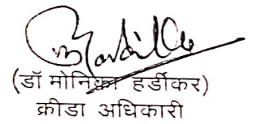 (डॉ मोनिका हर्डीकर)
क्रीडा अधिकारी